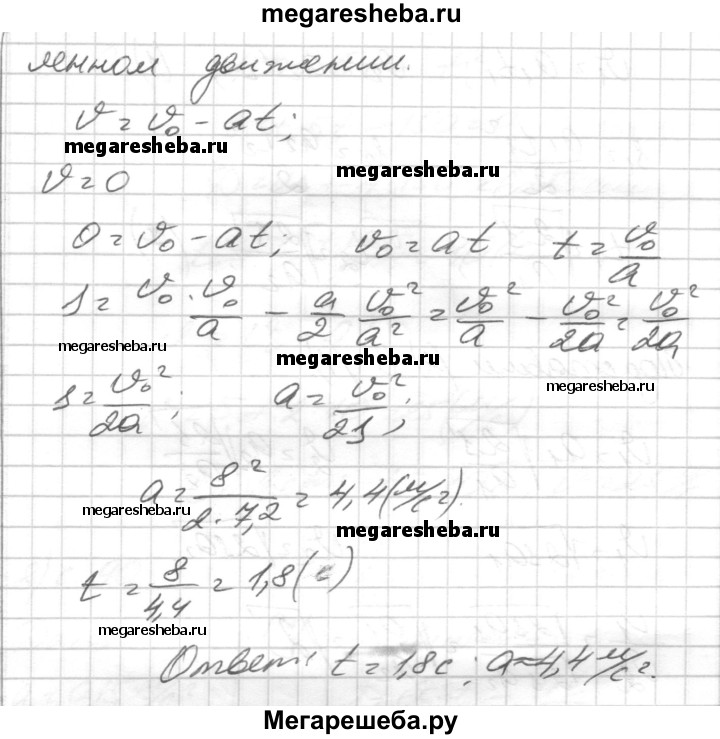 megaresheba.ru
ленном движении.
v = v₀ - at;
megaresheba.ru megaresheba.ru
v = 0
0 = v₀ - at; v₀ = at t = v₀/a
s = v₀ · v₀/a - a/2 v₀²/a² = v₀²/a - v₀²/2a = v₀²/2a
megaresheba.ru megaresheba.ru megaresheba.ru
s = v₀²/2a; a = v₀²/2s;
a = 8²/2·7,2 = 4,4 (м/с²).
megaresheba.ru megaresheba.ru
t = 8/4,4 = 1,8 (с)
megaresheba.ru
Ответ: t = 1,8 с; a = 4,4 м/с².
Мегарешеба.ру